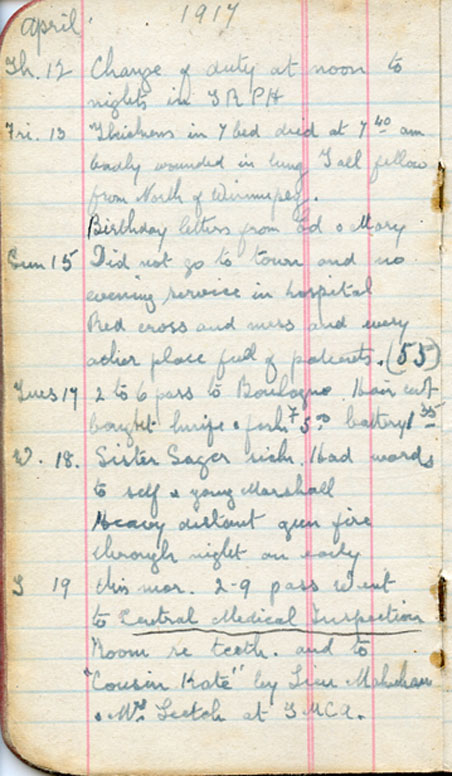 April 1917
Th. 12 Change of duty at noon to
nights in
Fri. 13 in 7 bed died at 7 40 am
badly wounded in lung Tall fellow
from North of Winnipeg.
Birthday letters from Ed & Mary
Sun 15 Did not go to town and no
evening service in hospital
Red cross and mess and every
other place full of patients. (55)
Tues 17 2 to 6 pass to Boulogne. Hair cut
bought knife & fork 7 50 battery 1 35
W. 18. Sister Sager sick. Had words
to self & young Marshall
Heavy distant gun fire
through night an early
T 19 this mor. 2-9 pass Went
to Central Medical Inspection
Room re teeth. and to
"Cousin Kate" by Lieu
& Mrs Leetch at YMCA.